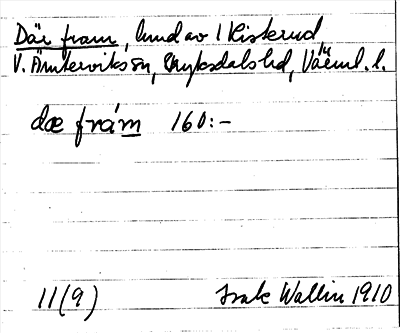 Där fram, hmd av 1 Kisterud,
V. Ämterviks sn, Fryksdals hd, Värml. l.
dæ fràm 160:-
11(9) Isak Wallin 1910